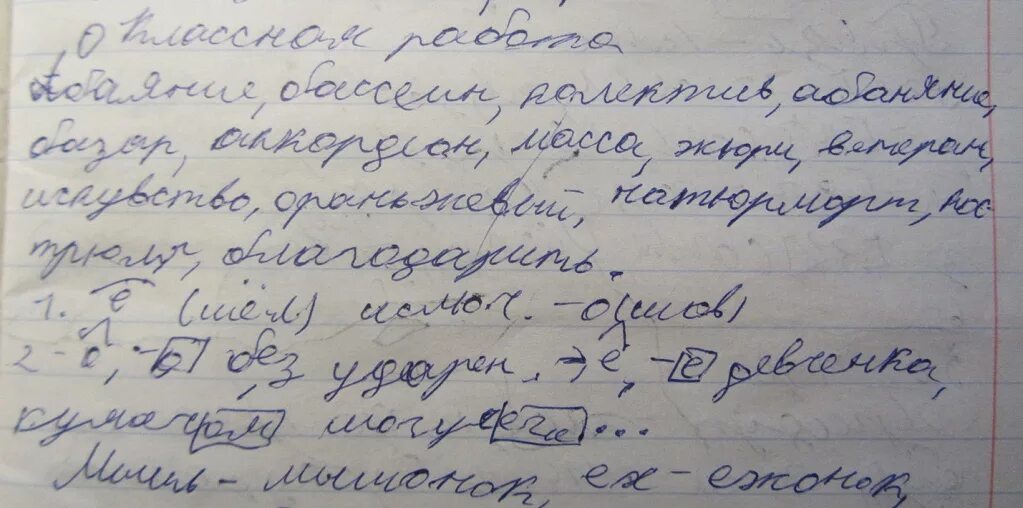 Классная работа
обаяние, бассеин, колектив, абаняние,
базар, аккордеон, масса, жюри, ветеран,
искувство, ораньжевый, натюрморт, кос-
трюля, благодарить.
1. ё (шёл) исключ. -о(шов)
2 - о, -о без ударен. → е, -е девченка,
кумачом могучего...
Мышь - мышонок, еж - ежонок,